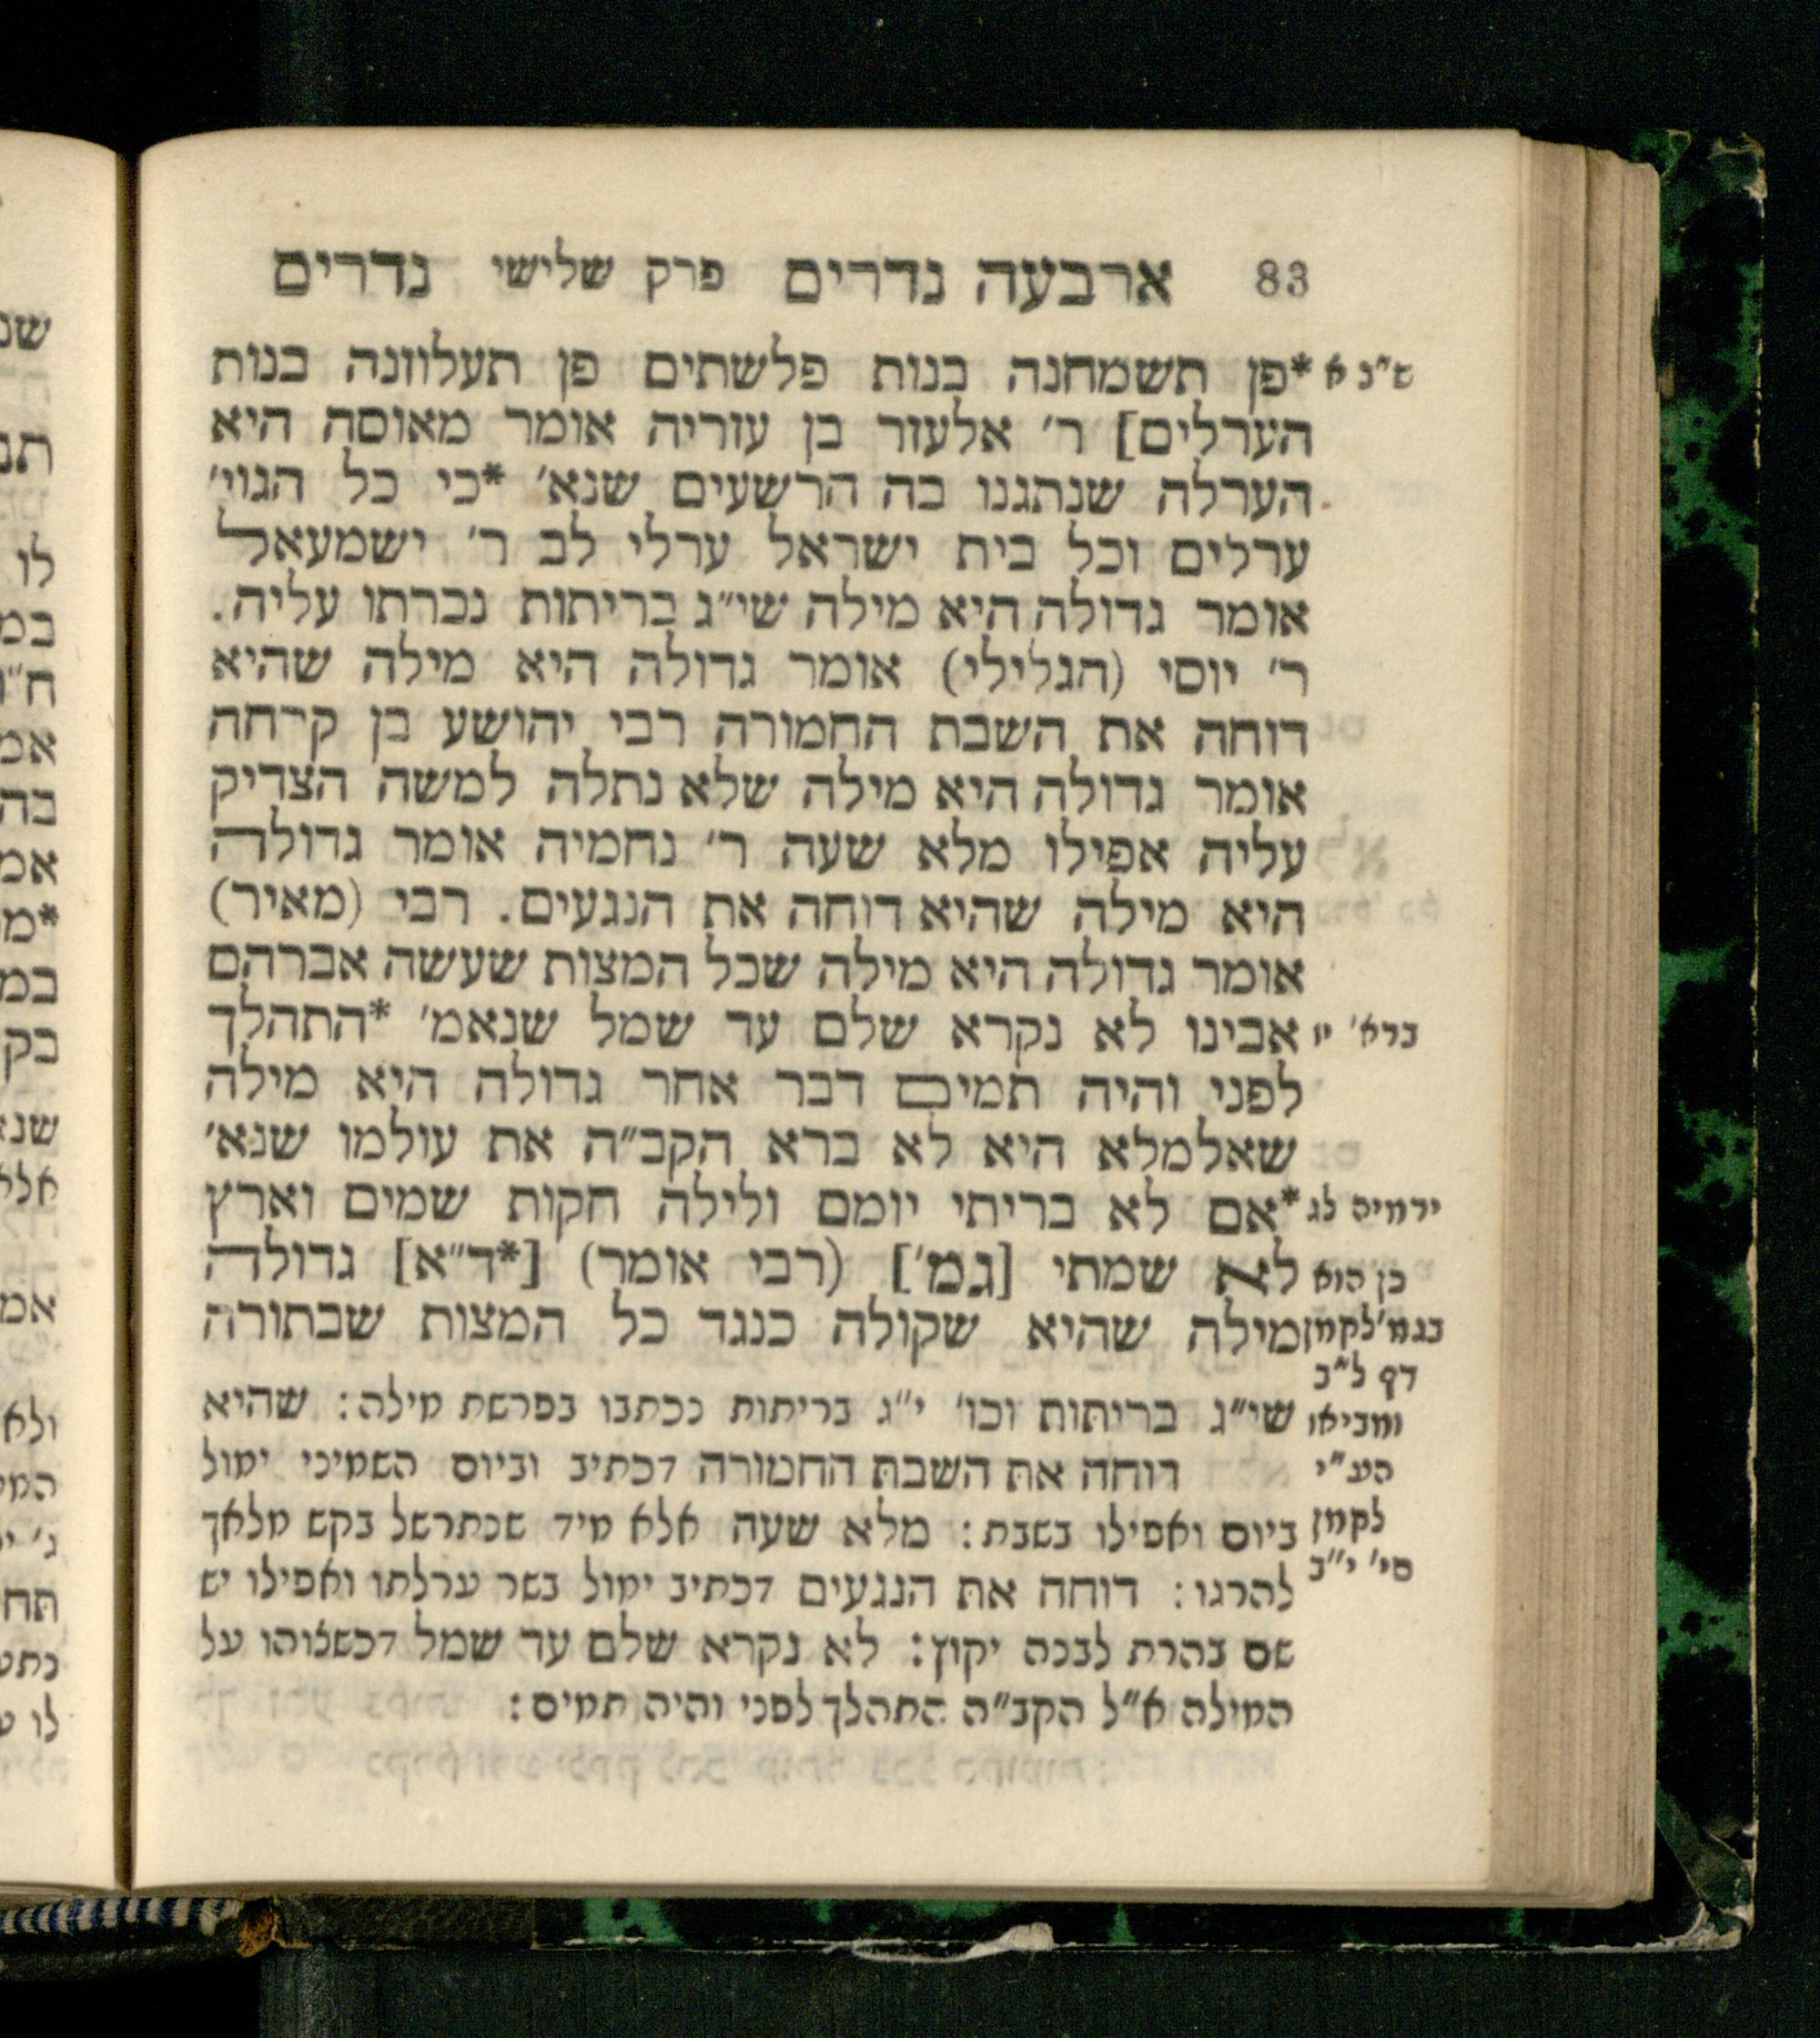 83 ארבעה נדרים פרק שלישי נדרים
ש"ב א *פן תשמחנה בנות פלשתים פן תעלוזנה בנות
הערלים] ר' אלעזר בן עזריה אומר מאוסה היא
הערלה שנתגנו בה הרשעים שנא' *כי כל הגוי'
ערלים וכל בית ישראל ערלי לב ר' ישמעאל
אומר גדולה היא מילה שי"ג בריתות נכרתו עליה.
ר' יוסי (הגלילי) אומר גדולה היא מילה שהיא
דוחה את השבת החמורה רבי יהושע בן קרחה
אומר גדולה היא מילה שלא נתלה למשה הצדיק
עליה אפילו מלא שעה ר' נחמיה אומר גדולה
היא מילה שהיא דוחה את הנגעים. רבי (מאיר)
אומר גדולה היא מילה שכל המצות שעשה אברהם
ברא' יז אבינו לא נקרא שלם עד שמל שנאמ' *התהלך
לפני והיה תמים דבר אחר גדולה היא מילה
שאלמלא היא לא ברא הקב"ה את עולמו שנא'
ירמיה לג *אם לא בריתי יומם ולילה חקות שמים וארץ
כן הוא לא שמתי [גמ'] (רבי אומר) [*ד"א] גדולה
בגמ' לקמן מילה שהיא שקולה כנגד כל המצות שבתורה
דף ל"ב
ומביאו שי"ג בריתות וכו' י"ג בריתות נכתבו בפרשת מילה: שהיא
הע"י דוחה את השבת החמורה דכתיב וביום השמיני ימול
לקמן ביום ואפילו בשבת: מלא שעה אלא מיד שנתרשל בקש מלאך
סי' י"ב להרגו: דוחה את הנגעים דכתיב ימול בשר ערלתו ואפילו יש
שם בהרת לבנה יקוץ: לא נקרא שלם עד שמל דכשצוהו על
המילה א"ל הקב"ה התהלך לפני והיה תמים: